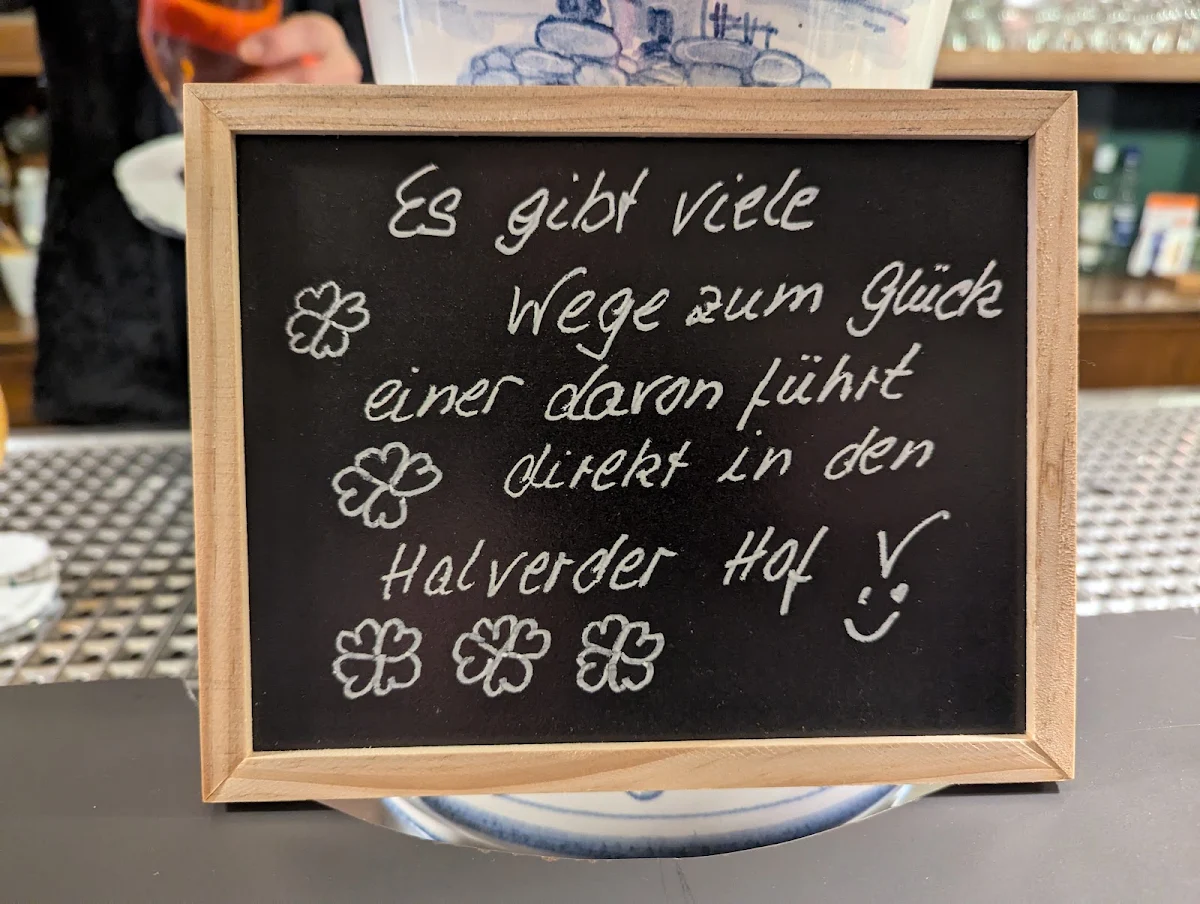 Es gibt viele
Wege zum Glück
einer davon führt
direkt in den
Halverder Hof